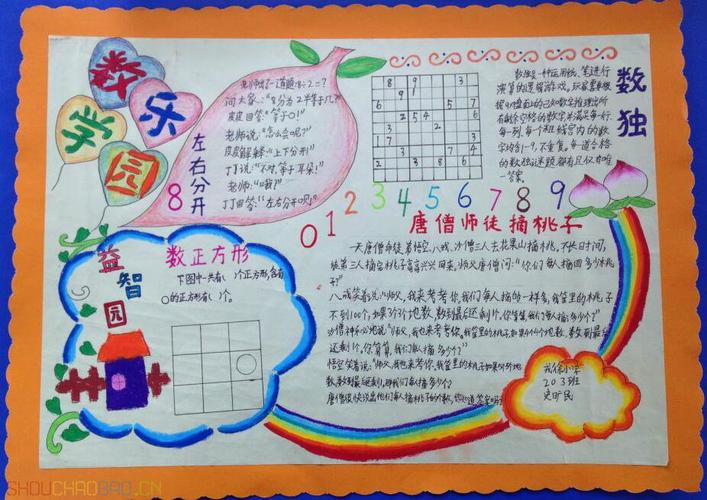 数学乐园
左右分开
8
老师出了一道题:8÷2=?
问大家:“8分为2半等于几?”
皮皮回答:“等于0!”
老师说:“怎么会呢?”
皮皮解释:“上下分开!”
丁丁说:“不对,等于耳朵!”
老师:“哦?”
丁丁回答:“左右分开呗!”
数独
数独是一种运用纸、笔进行
演算的逻辑游戏,玩家需要根
据9×9盘面上的已知数字,推理出所
有剩余空格的数字,并满足每一行、
每一列、每个粗线宫内的数
字均含1-9,不重复。每一道合格
的数独谜题都有且仅有唯
一答案。
0 1 2 3 4 5 6 7 8 9
唐僧师徒摘桃子
一天唐僧师徒
悟空、八戒、沙僧三人去花果山摘桃,不长时间,
徒弟三人摘完桃子高高兴兴回来。师父唐僧问:“你们每人摘回多少桃
子?”
八戒笑着说:“师父,我来考考你。我们每人摘的一样多,我筐里的桃子
不到100个,如果3个3个地数,数到最后还剩1个。你算算,我们每人摘了多少个?”
沙僧神秘地说:“师父,我也来考考你。我筐里的桃子,如果4个4个地数,数到最后
还剩1个。你算算,我们每人摘了多少个?”
悟空笑着说:“师父,我也来考考你。我筐里的桃子,如果5个5个地
数,数到最后还剩1个。你算算,我们每人摘多少个?”
唐僧很快说出他们每人摘桃子的个数,你知道答案吗?
益智园
数正方形
下图中一共有( )个正方形,含有
O的正方形有( )个。
小学
203班
SHOUCHAOBAO.CN